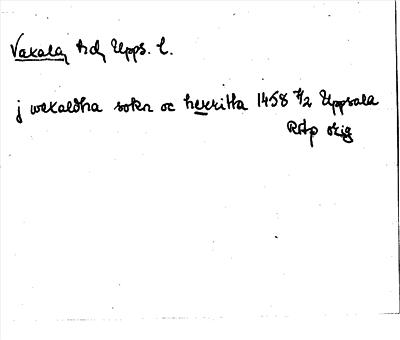 Vaksala, hd, Upps. l.
j wexaldha sokn oc herritha 1458 7/2 Uppsala
RAp orig